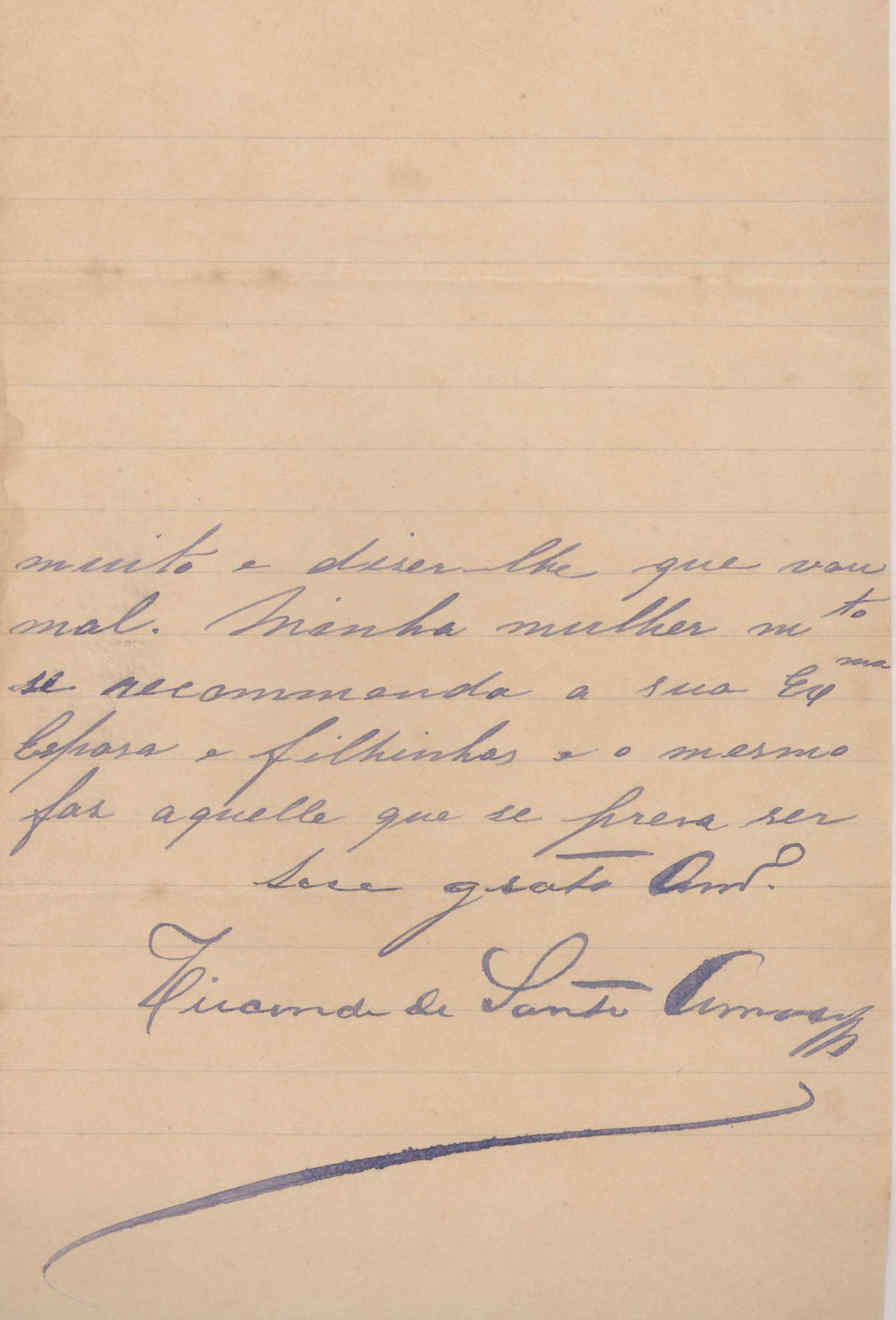 muito e diser-lhe que vou
mal. Minha mulher m^to
se recommenda a sua Ex^ma
Esposa e filhinhos e o mesmo
faz aquelle que se presa ser
seu grato Am.º
Visconde de Santo Amaro